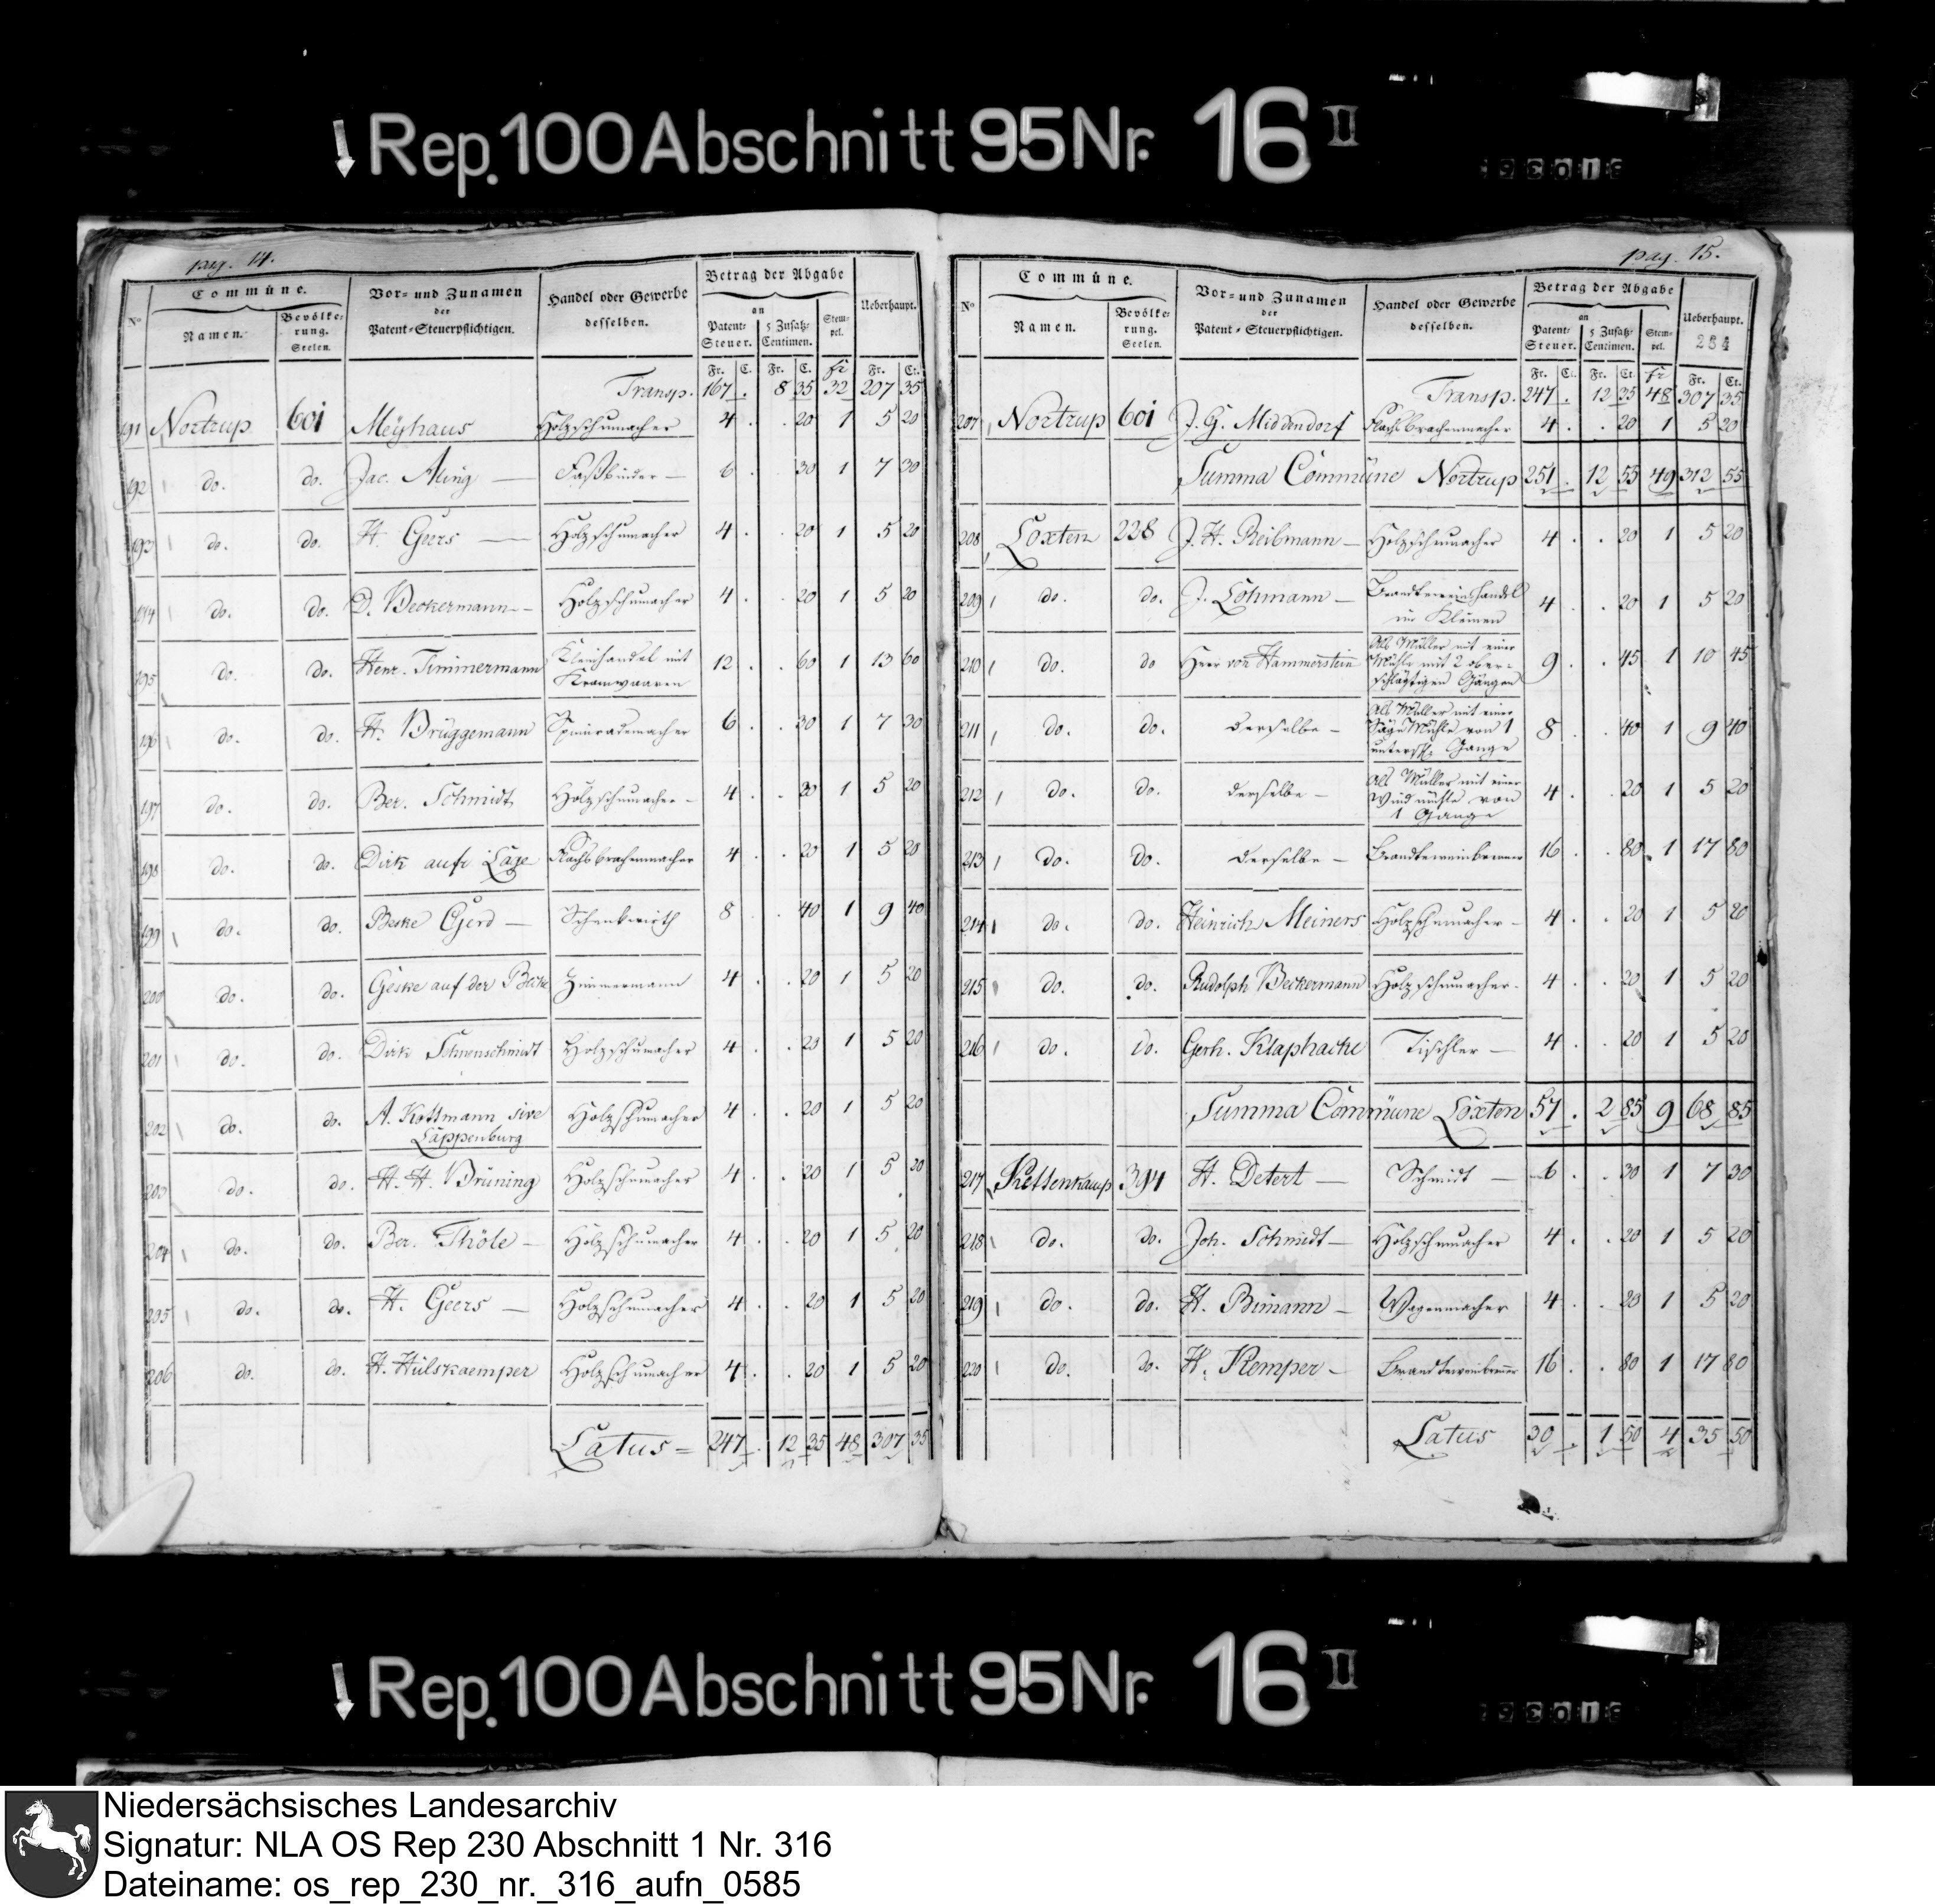 Rep. 100 Abschnitt 95 Nr. 16 II
pag. 14.
Commüne.
Vor- und Zunamen der Patent-Steuerpflichtigen.
Handel oder Gewerbe desselben.
Betrag der Abgabe
Ueberhaupt.
No Namen. Bevölkerung. Seelen. an Patent-Steuer. 5 Zusatz-Centimen. Stempel.
Fr. C. Fr. C. fr Fr. Ct.
Transp. 167 . 8 35 32 207 35
191 Nortrup 601 Meÿhaus Holzschumacher 4 . . 20 1 5 20
192 do. do. Jac. Aling — Faßbinder — 6 . . 30 1 7 30
193 do. do. H. Geers — Holzschumacher 4 . . 20 1 5 20
194 do. do. D. Beckermann — Holzschumacher 4 . . 20 1 5 20
195 do. do. Henr. Timmermann Kleinhandel mit Kramwaaren 12 . . 60 1 13 60
196 do. do. H. Brüggemann Spinnrademacher 6 . . 30 1 7 30
197 do. do. Ber. Schmidt Holzschumacher — 4 . . 20 1 5 20
198 do. do. Dirk aufr Lage Flachsbrachenmacher 4 . . 20 1 5 20
199 do. do. Beske Gerd — Schenkwirth 8 . . 40 1 9 40
200 do. do. Geske auf der Becke Zimmermann 4 . . 20 1 5 20
201 do. do. Dirk Holzschumacher 4 . . 20 1 5 20
202 do. do. A. Kottmann sive Lappenburg Holzschumacher 4 . . 20 1 5 20
203 do. do. H. H. Brüning Holzschumacher 4 . . 20 1 5 20
204 do. do. Ber. Thöle — Holzschumacher 4 . . 20 1 5 20
205 do. do. H. Geers — Holzschumacher 4 . . 20 1 5 20
206 do. do. H. Hülskaemper Holzschumacher 4 . . 20 1 5 20
Latus = 247 . 12 35 48 307 35
pag. 15.
Commüne.
Vor- und Zunamen der Patent-Steuerpflichtigen.
Handel oder Gewerbe desselben.
Betrag der Abgabe
Ueberhaupt.
234
No Namen. Bevölkerung. Seelen. an Patent-Steuer. 5 Zusatz-Centimen. Stempel.
Fr. Ct. Fr. Ct. fr Fr. Ct.
Transp. 247 . 12 35 48 307 35
207 Nortrup 601 J. G. Middendorf Flachsbrachenmacher 4 . . 20 1 5 20
Summa Commüne Nortrup 251 . 12 55 49 312 55
208 Loxten 238 J. H. Reibmann — Holzschumacher 4 . . 20 1 5 20
209 do. do. J. Lohmann — Brandteweinshandel im Kleinen 4 . . 20 1 5 20
210 do. do Herr von Hammerstein Als Müller mit einer Mühle mit 2 oberschlägtigen Gängen 9 . . 45 1 10 45
211 do. do. derselbe — Als Müller mit einer Säge Mühle von 1 unterschl. Gange 8 . . 40 1 9 40
212 do. do. derselbe — Als Müller mit einer Windmühle von 1 Gange 4 . . 20 1 5 20
213 do. do. derselbe — Brandteweinbrenner 16 . . 80 1 17 80
214 do. do. Heinrich Meiners Holzschumacher — 4 . . 20 1 5 20
215 do. do. Rudolph Beckermann Holzschumacher. 4 . . 20 1 5 20
216 do. do. Gerh. Klaphacke Tischler — 4 . . 20 1 5 20
Summa Commüne Loxten 57 . 2 85 9 68 85
217 Kettenkamp 394 H. Detert — Schmidt — 6 . . 30 1 7 30
218 do. do. Joh. Schmidt — Holzschumacher 4 . . 20 1 5 20
219 do. do. H. Bimann — Wagenmacher 4 . . 20 1 5 20
220 do. do. H. Kemper — Brandteweinbrenner 16 . . 80 1 17 80
Latus 30 . 1 50 4 35 50
Rep. 100 Abschnitt 95 Nr. 16 II
Niedersächsisches Landesarchiv
Signatur: NLA OS Rep 230 Abschnitt 1 Nr. 316
Dateiname: os_rep_230_nr._316_aufn_0585